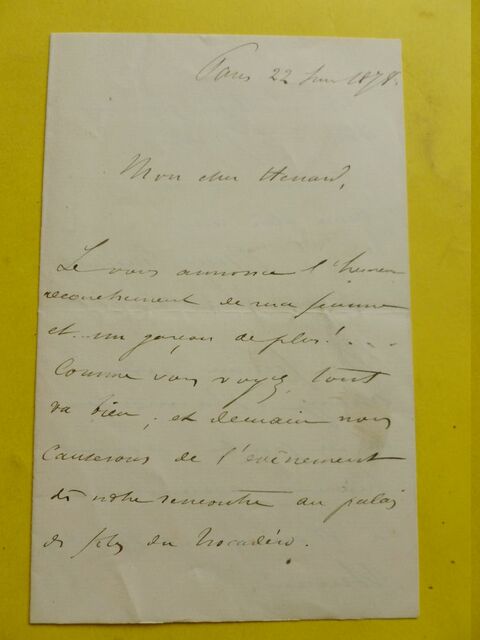 Paris 22 Juin 1878.
Mon cher Henard,
Je vous annonce l'heureux
accouchement de ma femme
et un garçon de plus! . . .
Comme vous voyez, tout
va bien, et demain nous
causerons de l'evènement
de notre rencontre au palais
de fêtes du Trocadéro.